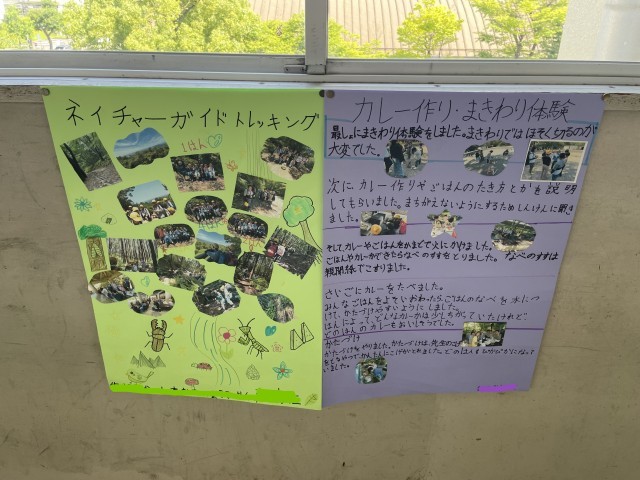 ネイチャーガイドトレッキング
1はん
カレー作り・まきわり体験
最しょにまきわり体験をしました。まきわりではほそく切るのが
大変でした。
次にカレー作りやごはんのたき方とかを説明
してもらいました。まちがえないようにするためしんけんに聞き
ました。
そしてカレーやごはんをかまどで火にかけました。
ごはんやカレーができたらなべのすすをとりました。なべのすすは
親関係でこすりました。
さいごにカレーをたべました。
みんなごはんをよそいおわったらごはんのなべを水につ
けて、かたづけやすいようにしました。
はんによって、どんなカレーかは少しちがっていたけれど
どのはんのカレーもおいしそうでした。
かたづけ
かたづけをやりました。かたづけは、先生の
いました。